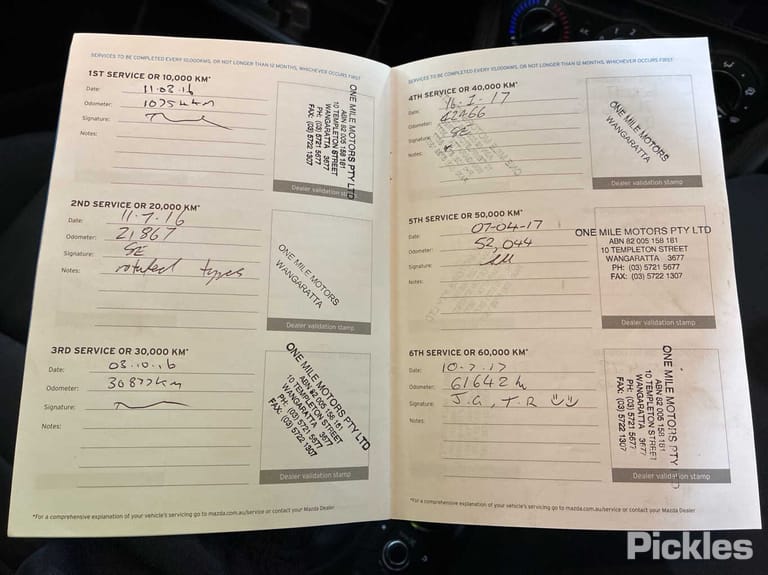 SERVICES TO BE COMPLETED EVERY 10,000KMS, OR NOT LONGER THAN 12 MONTHS, WHICHEVER OCCURS FIRST
1ST SERVICE OR 10,000 KM*
Date: 11.03.16
Odometer: 10754km
Signature:
Notes:
ONE MILE MOTORS PTY LTD
ABN 82 005 158 181
10 TEMPLETON STREET
WANGARATTA 3677
PH: (03) 5721 5677
FAX: (03) 5722 1307
Dealer validation stamp
2ND SERVICE OR 20,000 KM*
Date: 11.7.16
Odometer: 21867
Signature: GE
Notes: rotated types
ONE MILE MOTORS
WANGARATTA
Dealer validation stamp
3RD SERVICE OR 30,000 KM*
Date: 03.10.16
Odometer: 30877km
Signature:
Notes:
ONE MILE MOTORS PTY LTD
ABN 82 005 158 181
10 TEMPLETON STREET
WANGARATTA 3677
PH: (03) 5721 5677
FAX: (03) 5722 1307
Dealer validation stamp
*For a comprehensive explanation of your vehicle's servicing go to mazda.com.au/service or contact your Mazda Dealer
SERVICES TO BE COMPLETED EVERY 10,000KMS, OR NOT LONGER THAN 12 MONTHS, WHICHEVER OCCURS FIRST
4TH SERVICE OR 40,000 KM*
Date: 16.1.17
Odometer: 42466
Signature: GE
Notes:
ONE MILE MOTORS
WANGARATTA
Dealer validation stamp
5TH SERVICE OR 50,000 KM*
Date: 07-04-17
Odometer: 52,044
Signature:
Notes:
ONE MILE MOTORS PTY LTD
ABN 82 005 158 181
10 TEMPLETON STREET
WANGARATTA 3677
PH: (03) 5721 5677
FAX: (03) 5722 1307
Dealer validation stamp
6TH SERVICE OR 60,000 KM*
Date: 10.7.17
Odometer: 61642 km
Signature: J.G, T.R
Notes:
ONE MILE MOTORS PTY LTD
ABN 82 005 158 181
10 TEMPLETON STREET
WANGARATTA 3677
PH: (03) 5721 5677
FAX: (03) 5722 1307
Dealer validation stamp
*For a comprehensive explanation of your vehicle's servicing go to mazda.com.au/service or contact your Mazda Dealer
Pickles